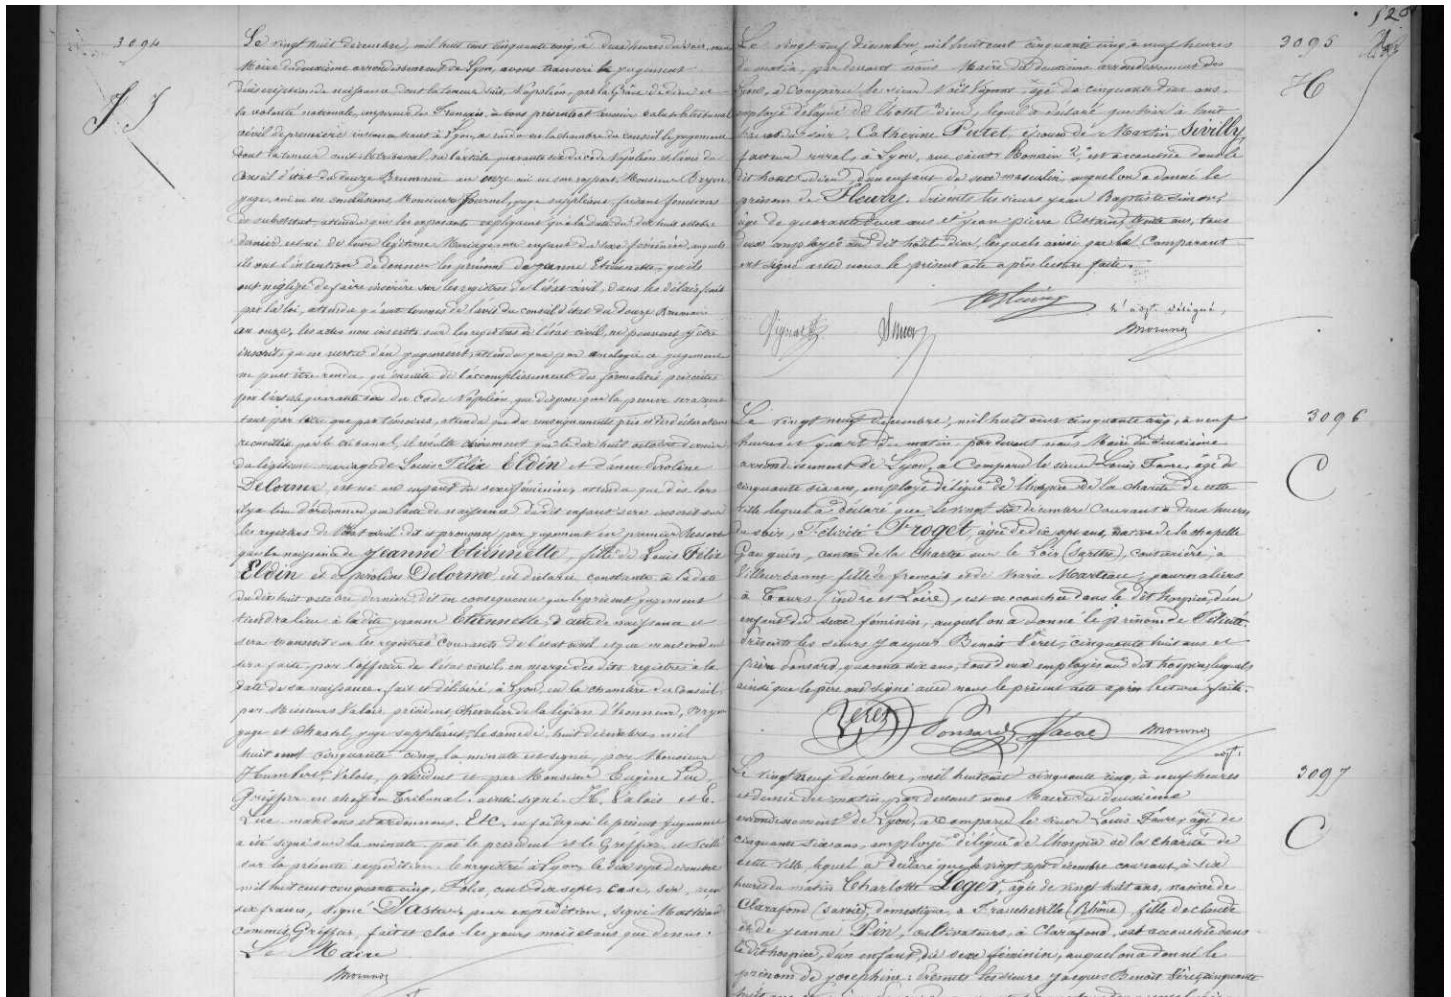 3094
Le vingt huit decembre, mil huit cent cinquante cinq, à deux heures du soir, nous
Maire du deuxième arrondissement de Lyon, avons transcrit le jugement
d'inscription de naissance dont la teneur suit. Napoléon, par la Grâce de dieu et
la volonté nationale, empereur des Français, à tous présents et à venir salut. Le tribunal
civil de première instance séant à Lyon, a rendu en la chambre du conseil le jugement
dont la teneur suit. Le tribunal, vu l'article quarante six du code Napoléon et l'avis du
Conseil d'état du douze Brumaire an onze, ouï en son rapport, Monsieur
juge, ouï en ses conclusions Monsieur Journel, juge suppléant faisant fonctions
de substitut, attendu que les exposants expliquent qu'à la date du dix huit octobre
dernier est né de leur légitime Mariage un enfant du sexe féminin, auquel
ils ont l'intention de donner les prénoms de Jeanne Etiennette, qu'ils
ont négligé de faire inscrire sur les registres de l'état civil, dans les délais fixés
par la loi, attendu qu'aux termes de l'avis du conseil d'état du douze Brumaire
an onze, les actes non inscrits sur les registres de l'état civil, ne peuvent y être
inscrits qu'en vertu d'un jugement, attendu que par analogie ce jugement
ne peut être rendu, qu'ensuite de l'accomplissement des formalités prescrites
par l'article quarante six du Code Napoléon, qui dispose que la preuve sera reçue
tant par titres que par témoins, attendu que des renseignements pris et des déclarations
recueillies par le tribunal, il résulte clairement que le dix huit octobre dernier
du légitime mariage de Louis Félix Eldin et d'anne Péroline
Delorme, est né un enfant du sexe féminin, attendu que dès lors
il y a lieu d'ordonner que l'acte de naissance dudit enfant sera inscrit sur
les registres de l'état civil: dit et prononce par jugement en premier Ressort
que la naissance de Jeanne Etiennette, fille de Louis Félix
Eldin et de péroline Delorme est déclarée constante à la date
du dix huit octobre dernier, dit en conséquence que le présent jugement
tiendra lieu à la dite jeanne Etiennette d'acte de naissance et
sera transcrit sur les registres courants de l'état civil et que mention en
sera faite, par l'officier de l'état civil, en marge des dits registres à la
date de sa naissance. fait et délibéré, à Lyon, en la chambre du Conseil
par Messieurs Valois président, chevalier de la légion d'honneur,
juge et Chastel, juge suppléant, le samedi huit décembre, mil
huit cent cinquante cinq, la minute est signée, par Monsieur
Humbert Valois, président et par Monsieur Eugène Luc,
Greffier en chef du Tribunal. ainsi signé. H. Valois et E.
Luc. mandons et ordonnons. Etc. en foi de quoi le présent jugement
a été signé sur la minute par le président et le Greffier et scellé
sur la présente expédition. Enregistré à Lyon le dix sept décembre
mil huit cent cinquante cinq, folio, cent dix sept, case, six, reçu
six francs, signé pour expédition, signé
commis Greffier, fait et clos les jours mois et an que dessus.
Le Maire
Morand
3095
H
Le vingt neuf décembre, mil huit cent cinquante cinq à neuf heures
du matin, par devant nous Maire du deuxième arrondissement de
Lyon, a comparu le sieur Noël Vignat, âgé de cinquante deux ans
employé délégué de l'hôtel Dieu, lequel a déclaré que hier à huit
heures du soir, Catherine Putet, épouse de Martin Sivilly,
facteur rural, à Lyon, rue saint Romain 2, est accouchée dans le
dit hôtel dieu, d'un enfant du sexe masculin, auquel on a donné le
prénom de Fleury. Présents les sieurs Jean Baptiste Simon,
âgé de quarante deux ans et Jean pierre trente ans, tous
deux employés au dit hôtel dieu, lesquels ainsi que le Comparant
ont signé avec nous le présent acte après lecture faite.
Vignat Simon
l'adjt. délégué,
Morand
3096
C
Le vingt neuf décembre, mil huit cent cinquante cinq, à neuf
heures et quart du matin, par devant nous Maire du deuxième
arrondissement de Lyon, a Comparu le sieur Louis Favre, âgé de
cinquante six ans, employé délégué de l'hospice de la charité de cette
ville lequel a déclaré que le vingt six décembre Courant à deux heures
du soir, Félicité Froget, âgée de dix sept ans, native de la chapelle
Gauguin, canton de la Chartre sur le Loir (Sarthe), couturière à
Villeurbanne fille de françois et de Marie Marteau, journaliers
à Tours (indre et Loire), est accouchée dans le dit hospice, d'un
enfant du sexe féminin, auquel on a donné le prénom de Félicité
Présents les sieurs Jacques Benoit Pérez, cinquante huit ans et
pierre Ponsard, quarante six ans, tous deux employés au dit hospice, lesquels
ainsi que le père ont signé avec nous le présent acte après lecture faite.
Perez Ponsard Favre Morand
adjt.
3097
C
Le vingt neuf décembre, mil huit cent cinquante cinq, à neuf heures
et demie du matin, par devant nous Maire du deuxième
arrondissement de Lyon, a comparu le sieur Louis Favre, âgé de
cinquante six ans, employé délégué de l'hospice de la charité de
cette ville, lequel a déclaré que le vingt sept décembre courant, à six
heures du matin Charlotte Leger, âgée de vingt huit ans, native de
Clarafond (savoie), domestique, à Francheville (Rhône) fille de claude
et de jeanne Pin, cultivateurs, à Clarafond, est accouchée dans
le dit hospice, d'un enfant du sexe féminin, auquel on a donné le
prénom de joséphine: Présents les sieurs Jacques Benoit Pérez, cinquante